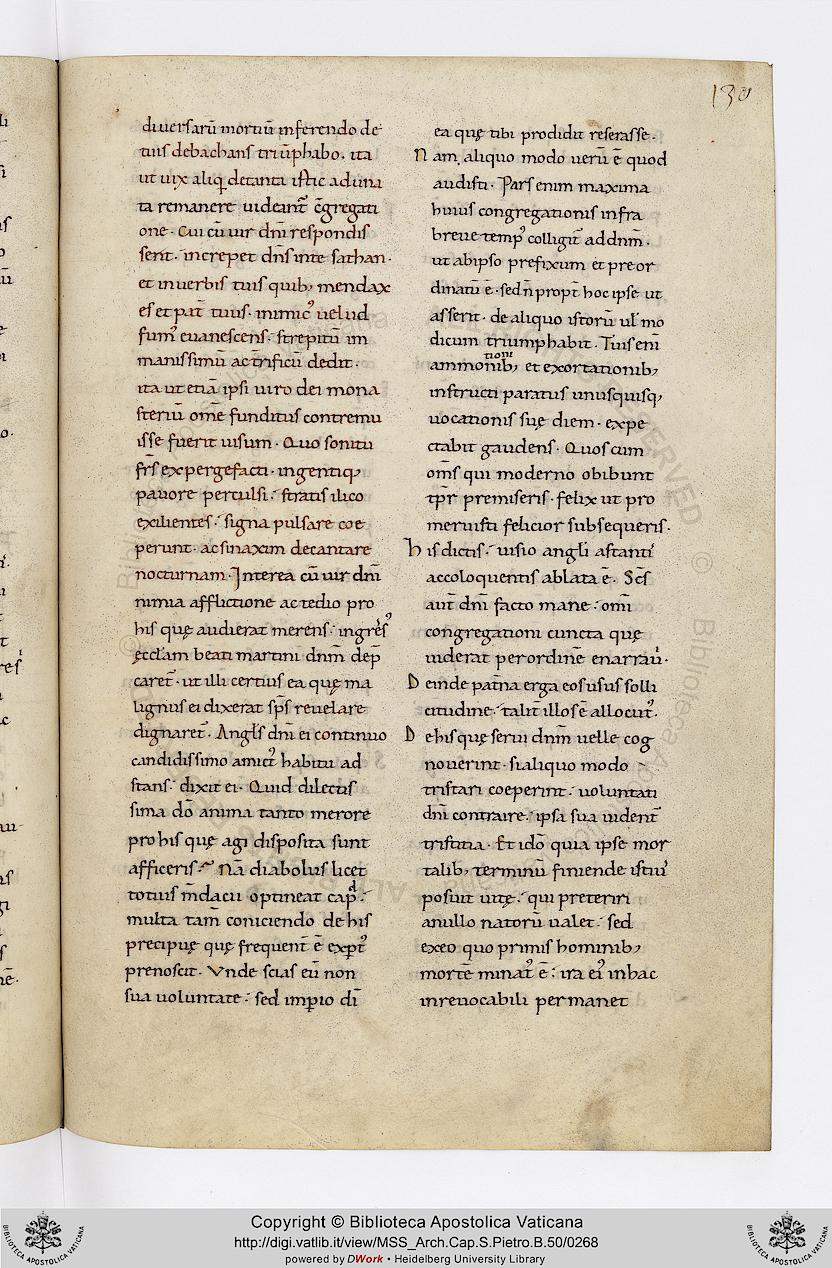 130
diuersarū mortiū inferendo de
tuis debachans triūphabo. ita
ut uix aliq detanta istic aduna
ta remanere uideant̄ c̄gregati
one. Cui cū uir dn̄i respondis
sent. increpet dn̄s inte sathan.
et inuerbis tuis quib; mendax
es et pat̄ tuus. inimic᾽ uelud
fum᾽ euanescens. strepitū im
manissimū ac t̄rificū dedit.
ita ut etiā ipsi uiro dei mona
steriū om̄e funditus contremu
isse fuerit uisum. Quo sonitu
fr̄s expergefacti. ingentiq;
pauore perculsi. stratis ilico
exilientes. signa pulsare coe
perunt. ac sinaxim decantare
nocturnam. Interea cū uir dn̄i
nimia afflictione ac tedio pro
his quę audierat merens. ingres᾽
ęccl̄am beati martini dn̄m dep̄
caret̄. ut illi certius ea quę ma
lignus ei dixerat sp̄s reuelare
dignaret̄. Angl̄s dn̄i ei continuo
candidissimo amict᾽ habitu ad
stans. dixit ei. Quid dilectis
sima dō anima tanto merore
pro his quę agi disposita sunt
afficeris. Nā diabolus licet
totius m̄dacii optineat cap᷒d.
multa tam̄ coniciendo de his
precipuę quę frequent̄ ē exp̄t᾽
prenoscit. Vnde scias eū non
sua uoluntate. sed imp̄io dī
ea quę tibi prodidit reserasse.
Nam aliquo modo uerū ē quod
audisti. Pars enim maxima
huius congregationis infra
breue temp᾽ colligit̄ ad dn̄m.
ut ab ipso prefixum et preor
dinatū ē. sed n̄ propt̄ hoc ipse ut
asserit. de aliquo istorū ul̄ mo
dicum triumphabit. Tuis eni
ammonitionib; et exortationib;
instructi paratus unusquisq;
uocationis suę diem. expe
ctabit gaudens. Quos cum
om̄s qui moderno obibunt
tp̄r premiseris. felix ut pro
meruisti felicior subsequeris.
His dictis. uisio angl̄i astanti᾽
ac coloquentis ablata ē. Sc̄s
aut̄ dn̄i facto mane. omī
congregationi cuncta quę
uiderat per ordinē enarrau̇.
Deinde pat̄na erga eos usus solli
citudine. talit̄ illos ē allocut᾽.
De his quę serui dn̄m uelle cog
nouerint. si aliquo modo
tristari coeperint. uoluntati
dn̄i contraire. ipsa sua uident̄
tristitia. Et idō quia ipse mor
talib; terminū finiende isti᾽
posuit uitę. qui preteriri
a nullo natorū ualet. sed
ex eo quo primis hominib;
mortē minat᾽ ē. ira ei᾽ in hac
inreuocabili permanet
Copyright © Biblioteca Apostolica Vaticana
http://digi.vatlib.it/view/MSS_Arch.Cap.S.Pietro.B.50/0268
powered by DWork • Heidelberg University Library
BIBLIOTECA APOSTOLICA VATICANA
BIBLIOTECA APOSTOLICA VATICANA